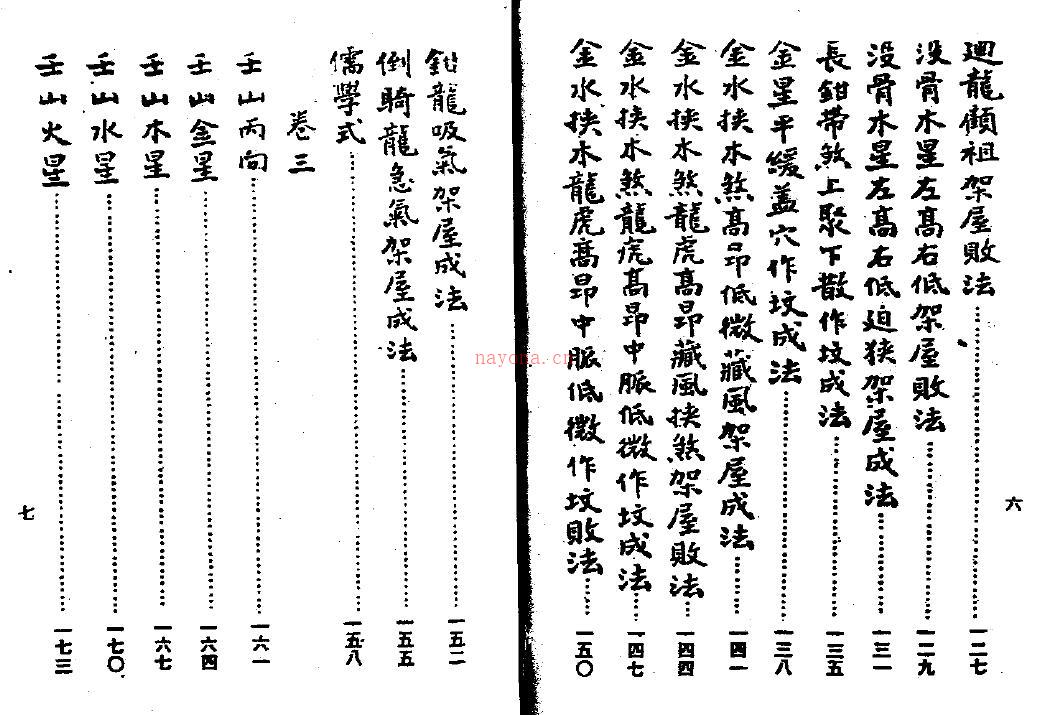 廻龍顧祖架屋敗法……一二七
没骨木星左高右低架屋敗法……一二九
没骨木星左高右低迫狹架屋成法……一三一
長鉗帶煞上聚下散作坟成法……一三五
金星平緩蓋穴作坟成法……一三八
金水挟木煞高昂低微藏風架屋成法……一四一
金水挟木煞龍虎高昂藏風挟煞架屋敗法……一四四
金水挟木煞龍虎高昂中脈低微作坟成法……一四七
金水挟木龍虎高昂中脈低微作坟敗法……一五〇
六
鉗龍吸氣架屋成法……一五二
倒騎龍急氣架屋成法……一五五
儒學式……一五八
卷三
壬山丙向……一六一
壬山金星……一六四
壬山木星……一六七
壬山水星……一七〇
壬山火星……一七三
七
nayona.cn